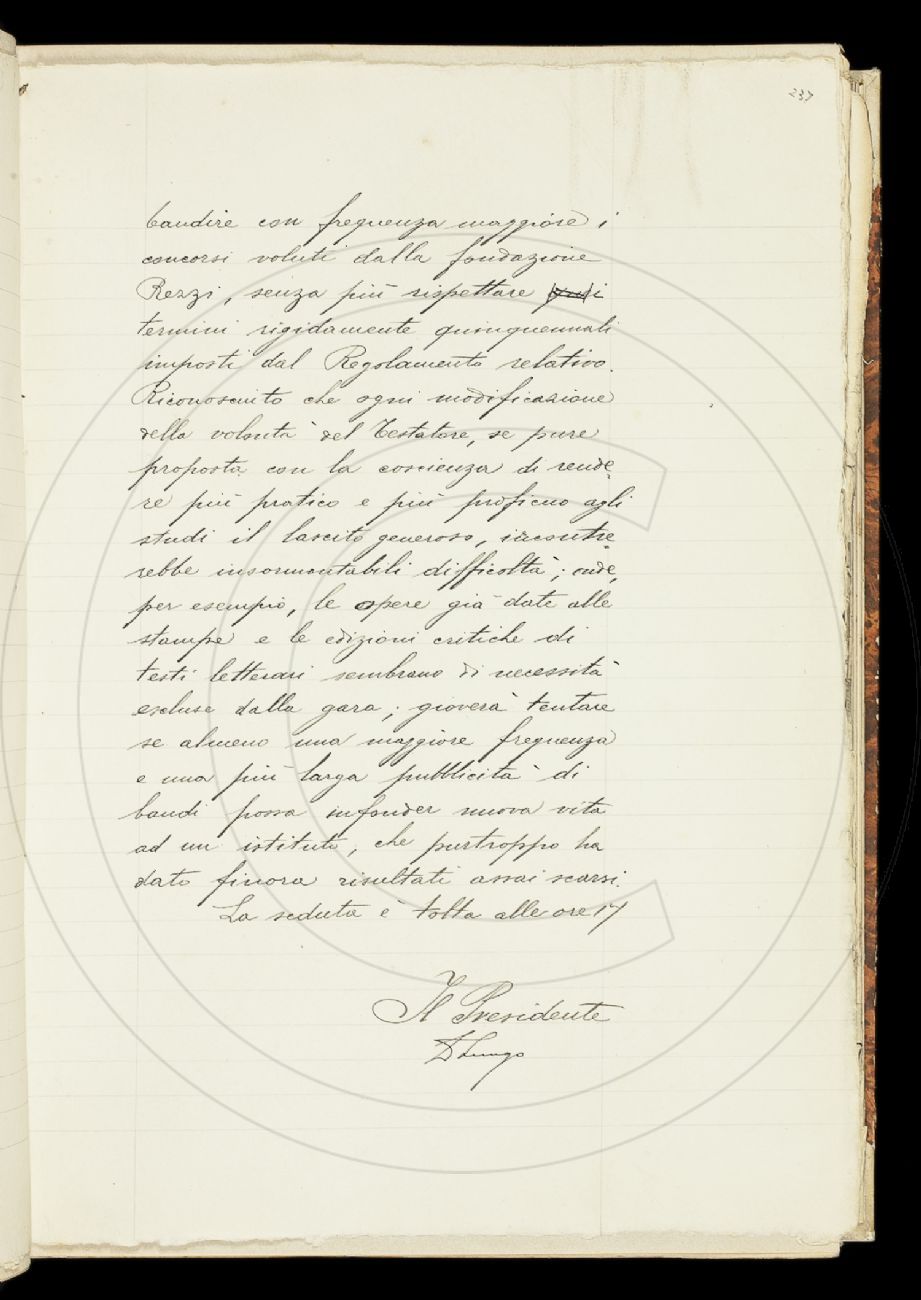 237
bandire con frequenza maggiore i
concorsi voluti dalla fondazione
Rezzi, senza più rispettare i
termini rigidamente quinquennali
imposti dal Regolamento relativo.
Riconosciuto che ogni modificazione
della volontà del Testatore, se pure
proposta con la coscienza di rende-
re più pratico e più proficuo agli
studi il lascito generoso, incontre-
rebbe insormontabili difficoltà; onde,
per esempio, le opere già date alle
stampe e le edizioni critiche di
testi letterari sembrano di necessità
escluse dalla gara; gioverà tentare
se almeno una maggiore frequenza
e una più larga pubblicità di
bandi possa infonder nuova vita
ad un istituto, che purtroppo ha
dato finora risultati assai scarsi.
La seduta è tolta alle ore 17
Il Presidente